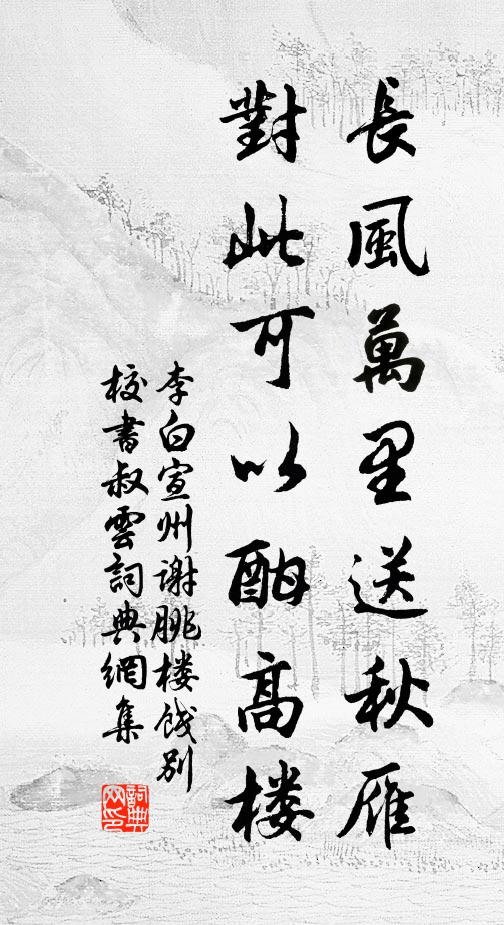 長風萬里送秋雁
對此可以酣高楼
李白宣州谢朓楼饯别
校書叔雲詞典網集